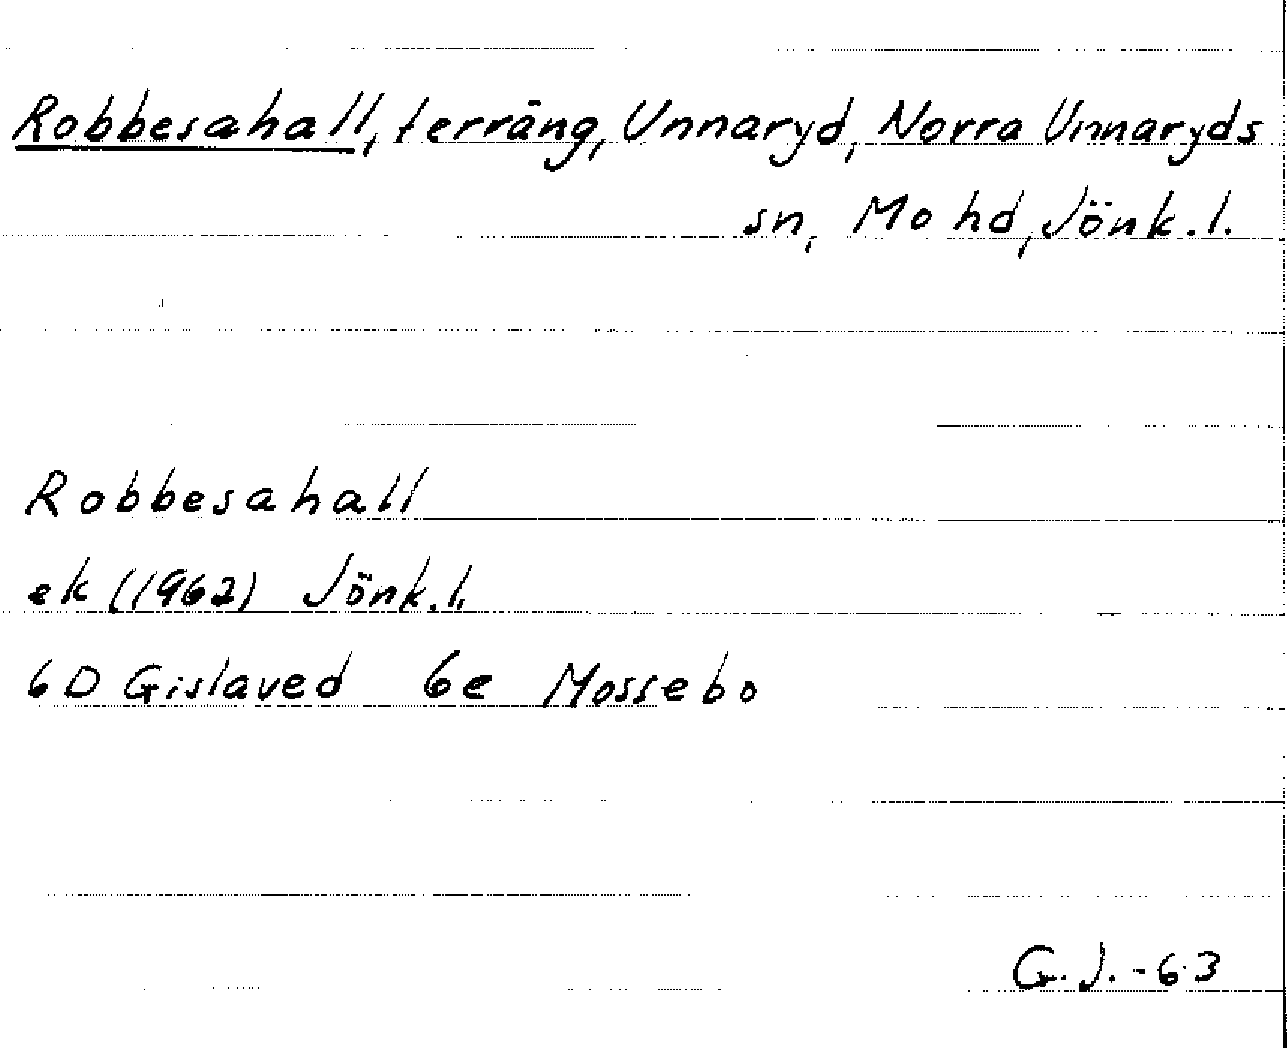 Robbesahall, terräng, Unnaryd, Norra Unnaryds
sn, Mo hd, Jönk.l.
Robbesahall
ek (1962) Jönk.l.
6D Gislaved 6e Mossebo
G.J.-63